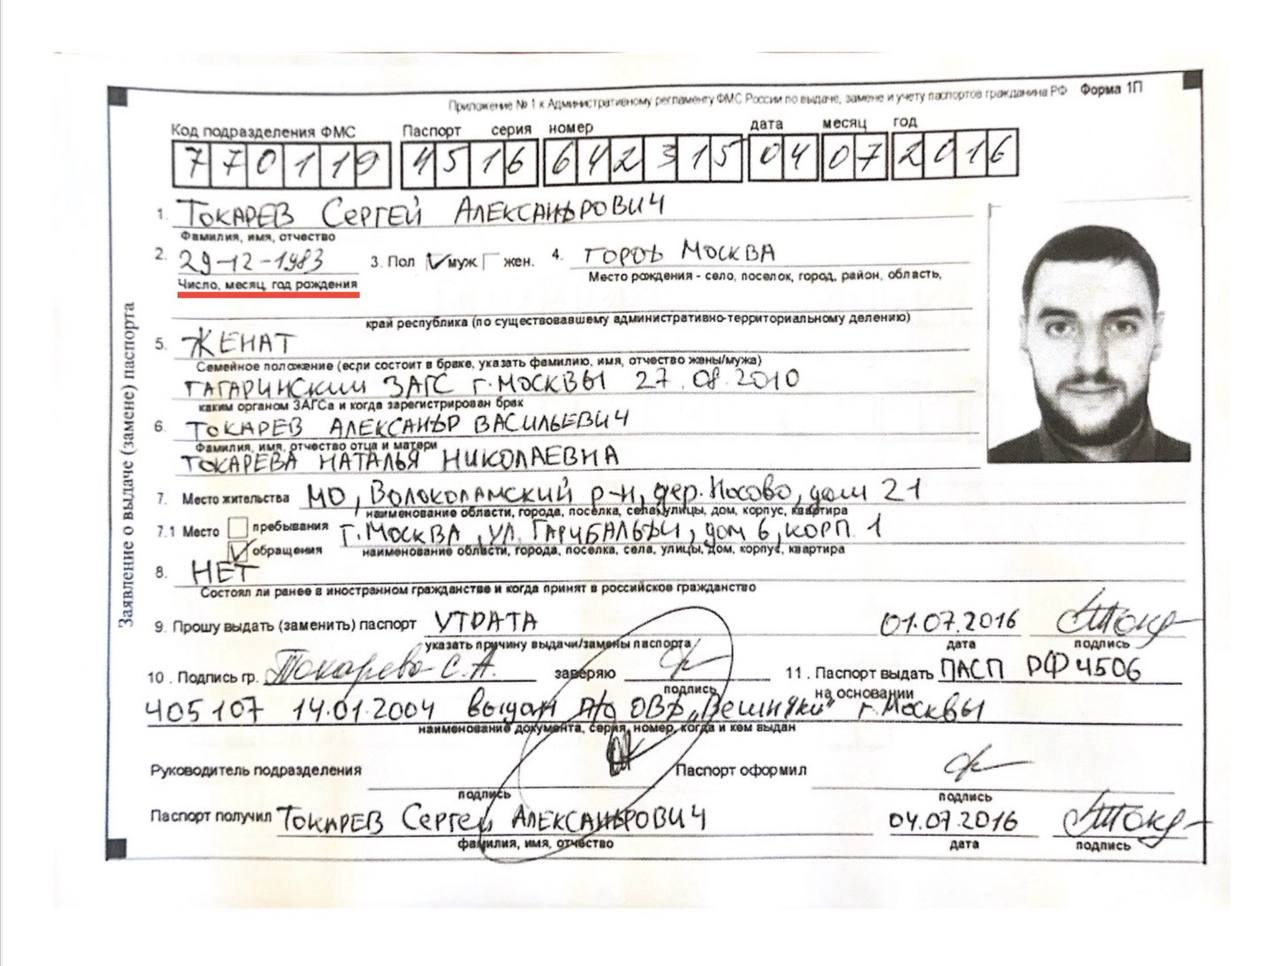 Приложение № 1 к Административному регламенту ФМС России по выдаче, замене и учету паспортов гражданина РФ Форма 1П
Код подразделения ФМС Паспорт серия номер дата месяц год
770119 4516 642315 04 07 2016
1. Токарев Сергей Александрович
Фамилия, имя, отчество
2. 29-12-1983 3. Пол муж жен. 4. город Москва
Число, месяц, год рождения Место рождения - село, поселок, город, район, область,
край республика (по существовавшему административно-территориальному делению)
5. Женат
Семейное положение (если состоит в браке, указать фамилию, имя, отчество жены/мужа)
Гагаринский ЗАГС г. Москвы 27.08.2010
каким органом ЗАГСа и когда зарегистрирован брак
6. Токарев Александр Васильевич
Фамилия, имя, отчество отца и матери
Токарева Наталья Николаевна
7. Место жительства МО, Волоколамский р-н, дер. Носово, дом 21
наименование области, города, поселка, села, улицы, дом, корпус, квартира
7.1 Место пребывания г. Москва, ул. Гарибальди, дом 6, корп 1
обращения наименование области, города, поселка, села, улицы, дом, корпус, квартира
8. Нет
Состоял ли ранее в иностранном гражданстве и когда принят в российское гражданство
9. Прошу выдать (заменить) паспорт утрата 01.07.2016
указать причину выдачи/замены паспорта дата подпись
10. Подпись гр. Токарева С.А. заверяю 11. Паспорт выдать пасп РФ 4506
подпись на основании
405107 14.01.2004 выдан п/о ОВД „Вешняки" г. Москвы
наименование документа, серия, номер, когда и кем выдан
Руководитель подразделения Паспорт оформил
подпись подпись
Паспорт получил Токарев Сергей Александрович 04.07.2016
фамилия, имя, отчество дата подпись
Заявление о выдаче (замене) паспорта